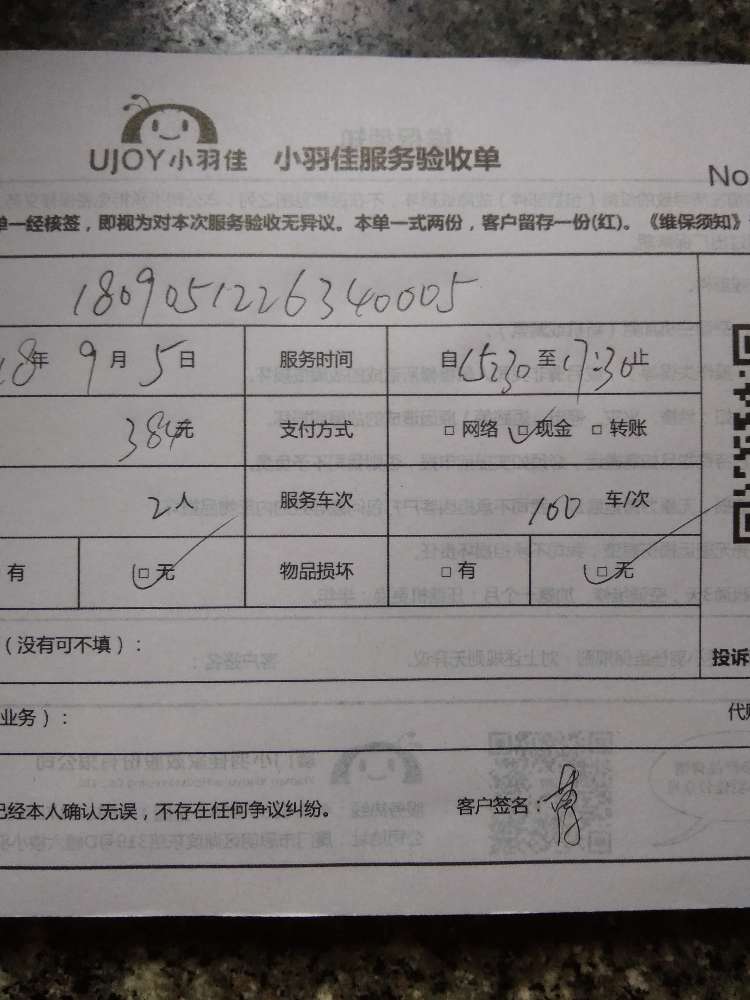 UJOY小羽佳 小羽佳服务验收单
No
单一经核签，即视为对本次服务验收无异议。本单一式两份，客户留存一份(红)。《维保须知》
1809051226340005
18年 9月 5日 服务时间 自15:30至17:30止
384元 支付方式 □ 网络 □ 现金 □ 转账
2人 服务车次 100 车/次
有 □ 无 物品损坏 □ 有 □ 无
（没有可不填）：
投诉
业务）：
代
已经本人确认无误，不存在任何争议纠纷。 客户签名：